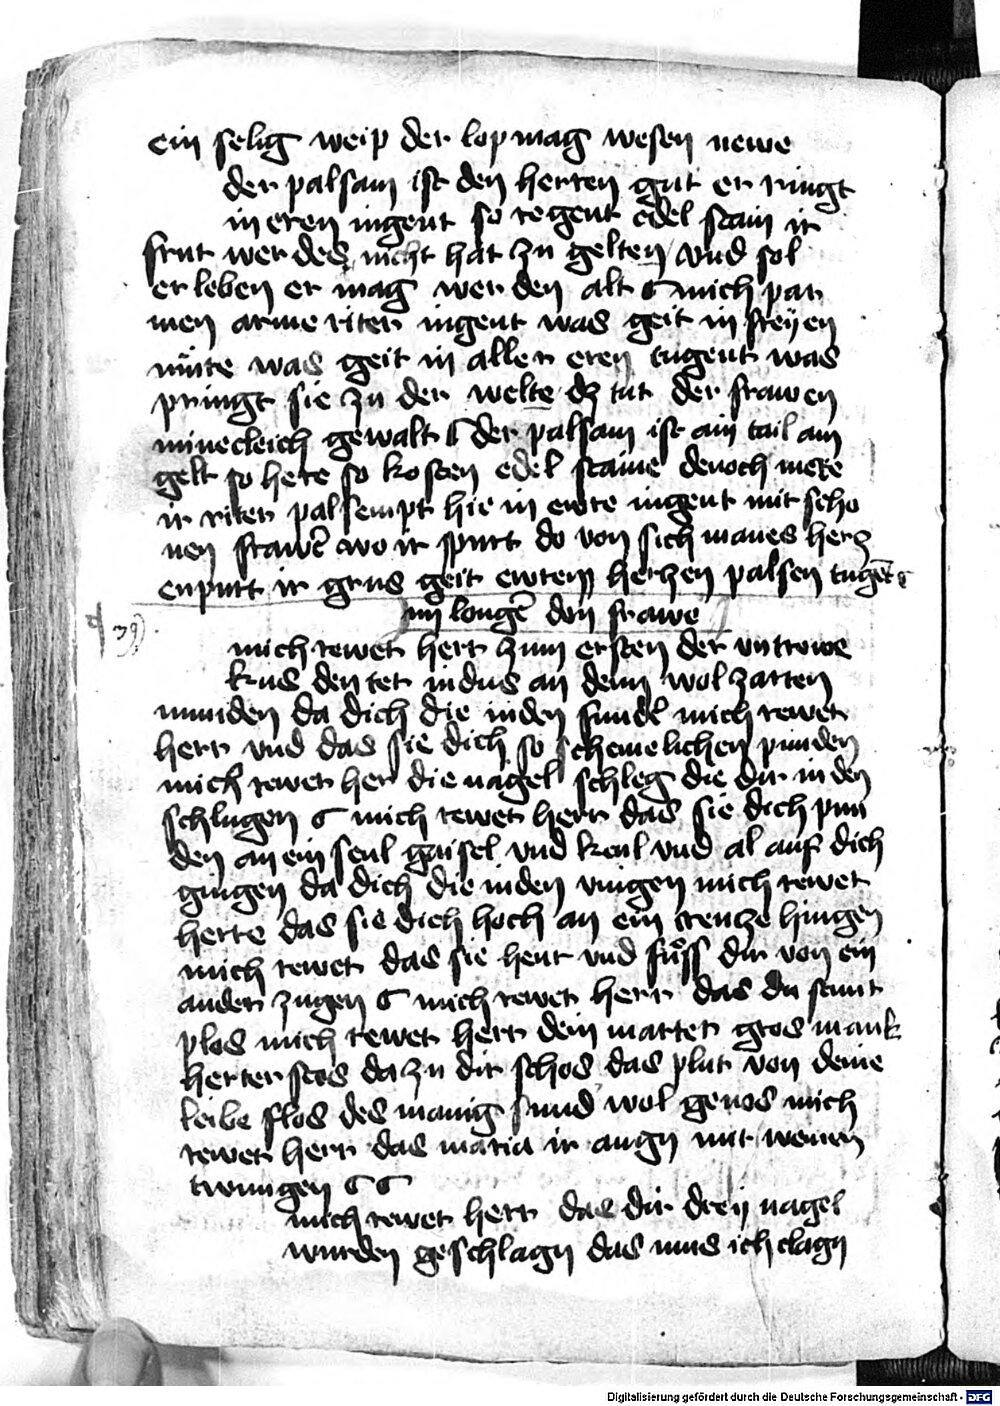 ein selig weip der lop mag wesen newe
der palsam ist den herren gut er ringt
in eren iugent so regent edel stain ir
frut wer des nicht hat zu gelten vnd sol
er leben er mag wer den alt mich par
men arme riter iugent was geit in freÿen
mŭte was geit in aller eren tugent was
pringt sie zu der welte dz tut der frawen
minecleich gewalt der palsam ist ain tail am
gelt so here so kosten edel staine denoch mere
ir riter palsempt hie in ewre iugent mit scho
nen frawē wo ir spurt do von sich manes herz
enpurt ir grus geit ewrem herzen palsen tugēt
im langē don frawe
39)
mich rewet herr zum ersten der vntrewe
kus den tet iudas an deim wol zarten
munden da dich die iuden funde mich rewet
herr vnd das sie dich so schemelichen punden
mich rewet her die nagel schleg die dir iuden
schlugen mich rewet herr das sie dich pun
den an ein seul gaisel vnd keul vnd al auf dich
gingen da dich die iuden vingen mich rewet
herre das sie dich hoch an ein creuze hingen
mich rewet das sie hent vnd fŭss dir von ein
ander zugen mich rewet herr das du stunt
plos mich rewet herr dein marter gros mank
herter stos da zu dir schos das plut von deine
leibe flos des manig sund wol genos mich
rewet herr das maria ir augn mit wenen
twungen
mich rewet herr das dir dreÿ nagel
wurden geschlagn das mus ich clagn
Digitalisierung gefördert durch die Deutsche Forschungsgemeinschaft - DFG